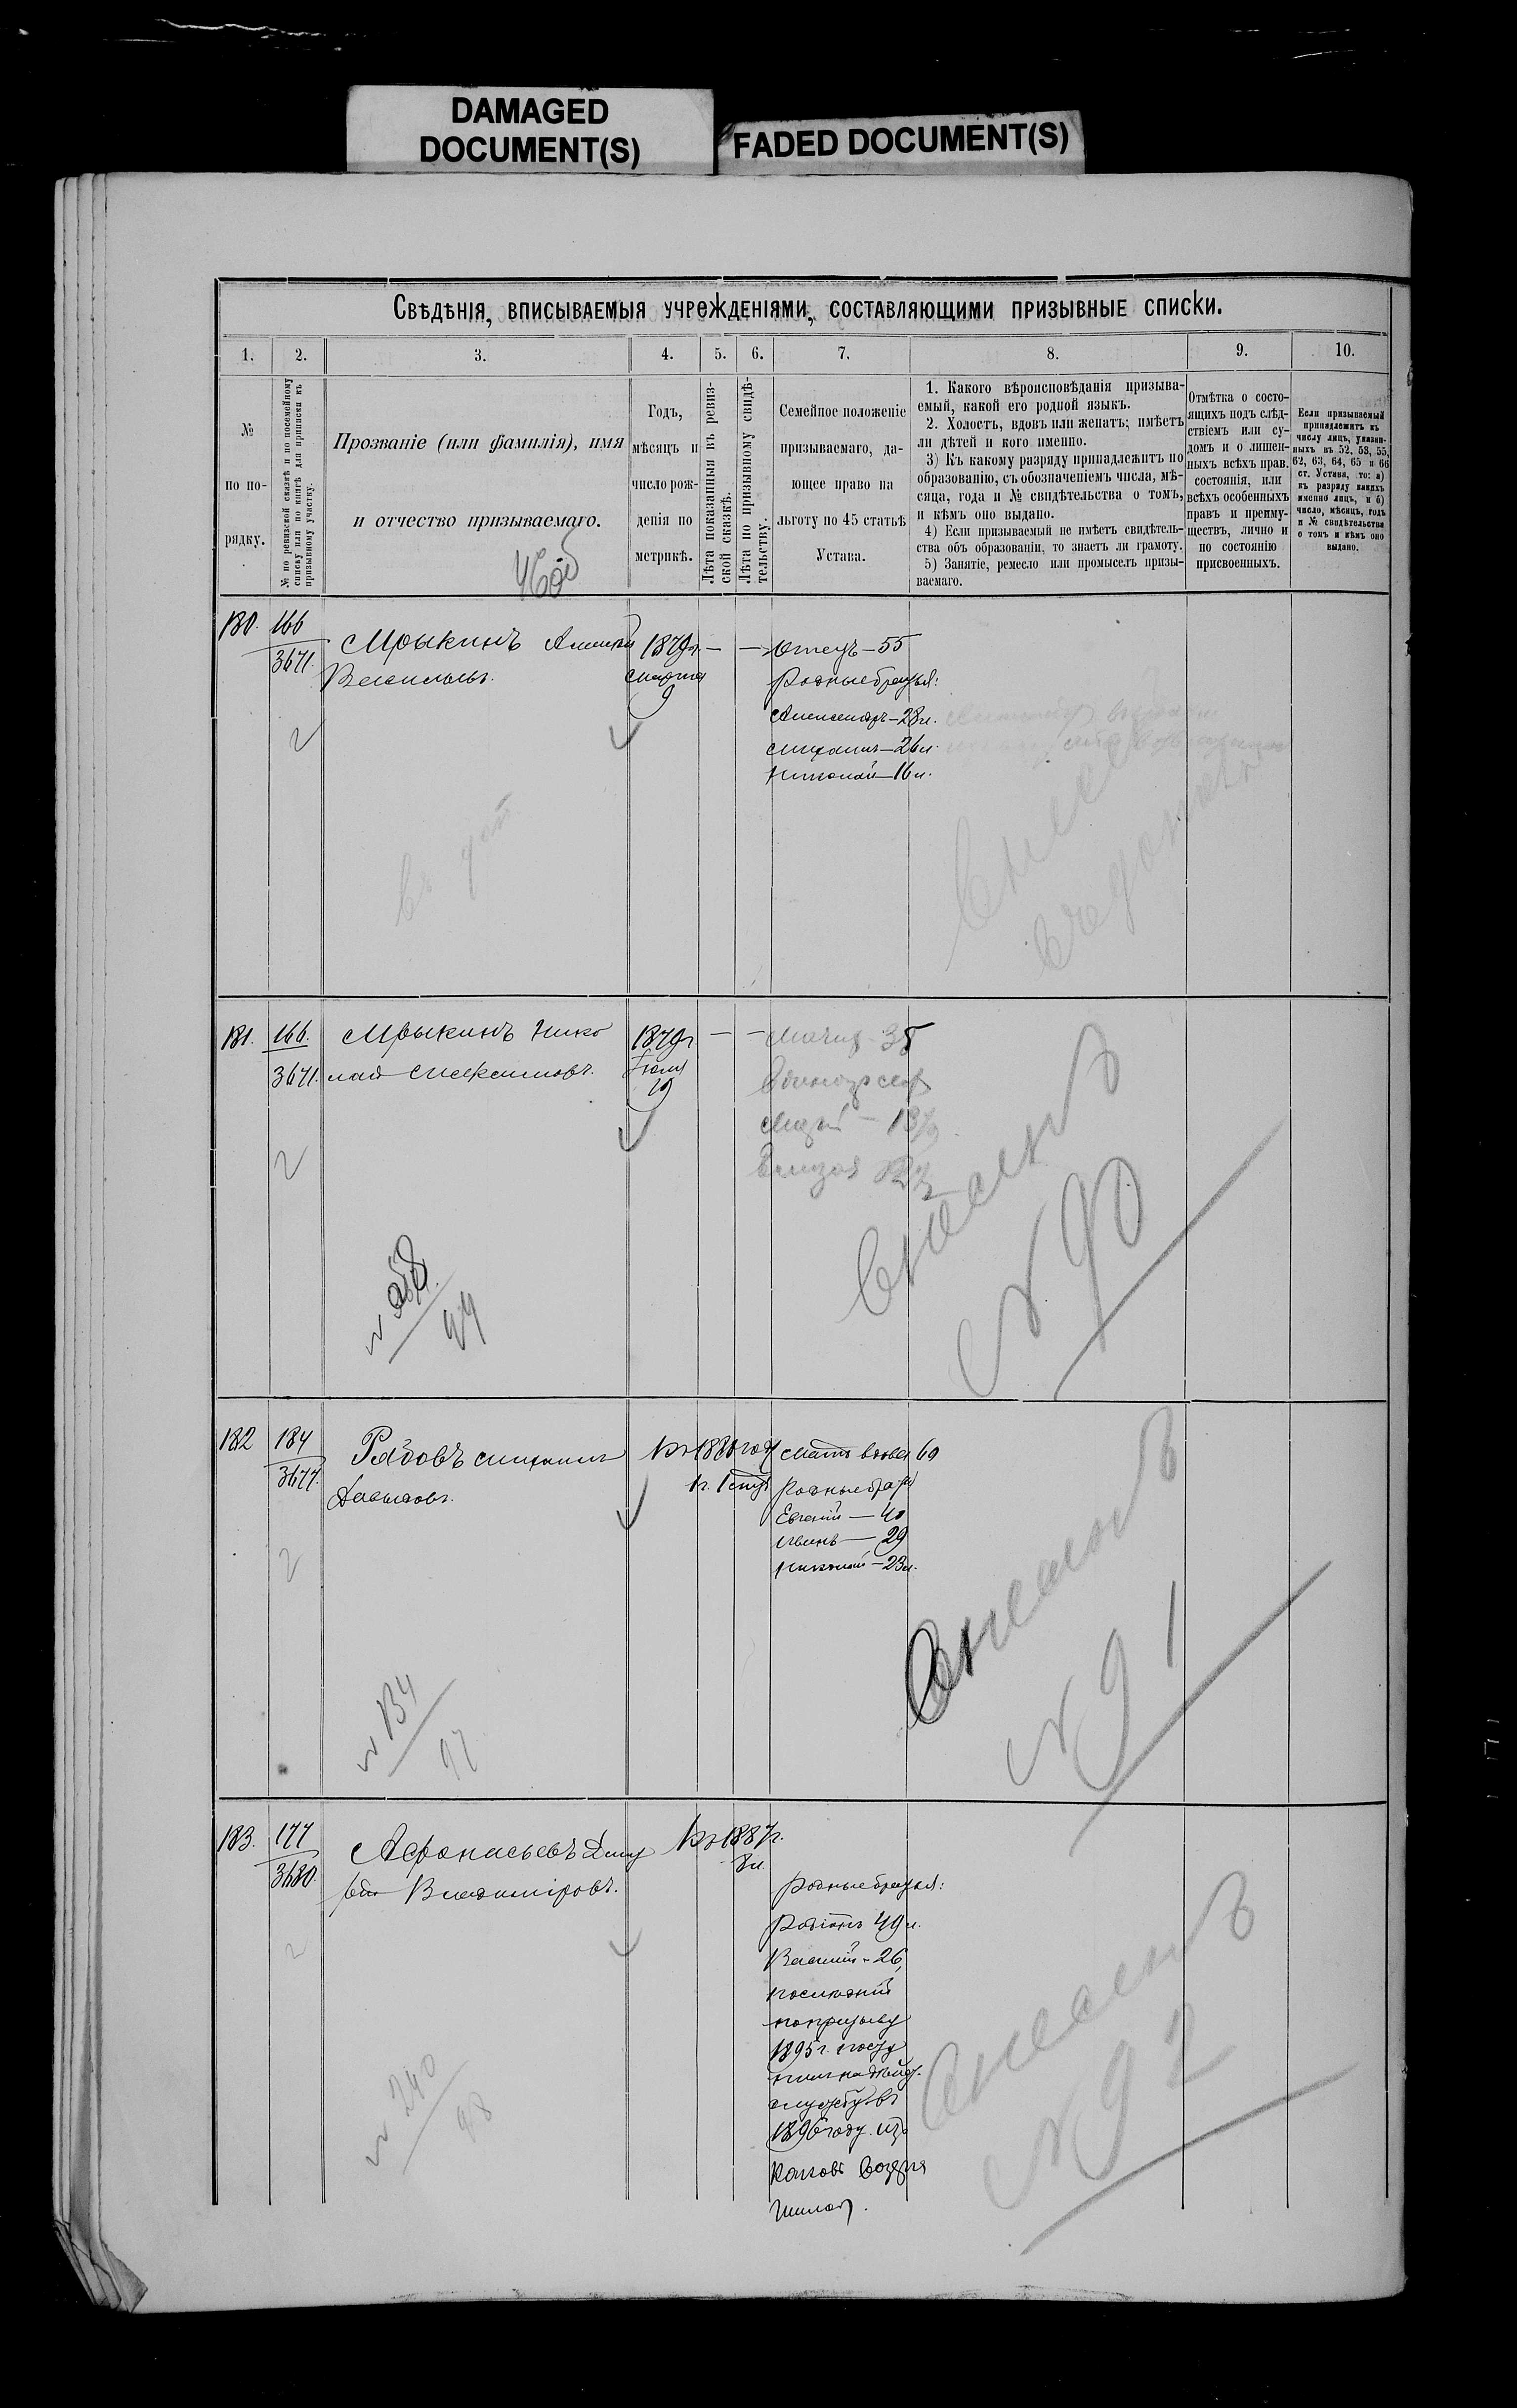 DAMAGED
DOCUMENT(S)
FADED DOCUMENT(S)
Свѣдѣнія, вписываемыя учрежденіями, составляющими призывные списки.
1. 2. 3. 4. 5. 6. 7. 8. 9. 10.
№
по по-
рядку.
№ по ревизской сказкѣ и по посемейному
списку или по книгѣ для приписки къ
призывному участку.
Прозваніе (или фамилія), имя
и отчество призываемаго.
Годъ,
мѣсяцъ и
число рож-
денія по
метрикѣ.
Лѣта показанныя въ ревиз-
ской сказкѣ.
Лѣта по призывному свидѣ-
тельству.
Семейное положеніе
призываемаго, да-
ющее право на
льготу по 45 статьѣ
Устава.
1. Какого вѣроисповѣданія призыва-
емый, какой его родной языкъ.
2. Холостъ, вдовъ или женатъ; имѣетъ
ли дѣтей и кого именно.
3) Къ какому разряду принадлежитъ по
образованію, съ обозначеніемъ числа, мѣ-
сяца, года и № свидѣтельства о томъ,
и кѣмъ оно выдано.
4) Если призываемый не имѣетъ свидѣтель-
ства объ образованіи, то знаетъ ли грамоту.
5) Занятіе, ремесло или промыселъ призы-
ваемаго.
Отмѣтка о состо-
ящихъ подъ слѣд-
ствіемъ или су-
домъ и о лишен-
ныхъ всѣхъ прав.
состоянія, или
всѣхъ особенныхъ
правъ и преиму-
ществъ, лично и
по состоянію
присвоенныхъ.
Если призываемый
принадлежитъ къ
числу лицъ, указан-
ныхъ въ 52, 53, 55,
62, 63, 64, 65 и 66
ст. Устава, то: а)
къ разряду какихъ
именно лицъ, и б)
число, мѣсяцъ, годъ
и № свидѣтельства
о томъ и кѣмъ оно
выдано.
180. 166
3671.
Мрыкинъ Алексѣй
Васильевъ.
1879г.
марта
9
— —
Отецъ — 55
Родные братья:
Александръ — 28 л.
Михаилъ — 26 л.
Николай — 16 л.
181. 166.
3671.
Мрыкинъ Нико
лай Максимовъ.
1879г
Іюля
19
— —
Мачиха 38
Внесенъ
№ 90
182 184
3677.
Рябовъ Михаилъ
Давыдовъ.
Въ 1880 году
Мать вдова 69
Родные братья
Евгеній — 40
Иванъ — 29
Николай — 23 л.
Внесенъ
№ 91
183. 177
3680.
Афонасьевъ Дми
трій Владиміровъ.
Въ 1887г.
8 л.
Родные братья:
Родіонъ 49 л.
Василій - 26,
послѣдній
по призыву
1895 г. посту
пилъ на дѣйст.
службу въ
1896 году. изъ
Внесенъ
№ 92